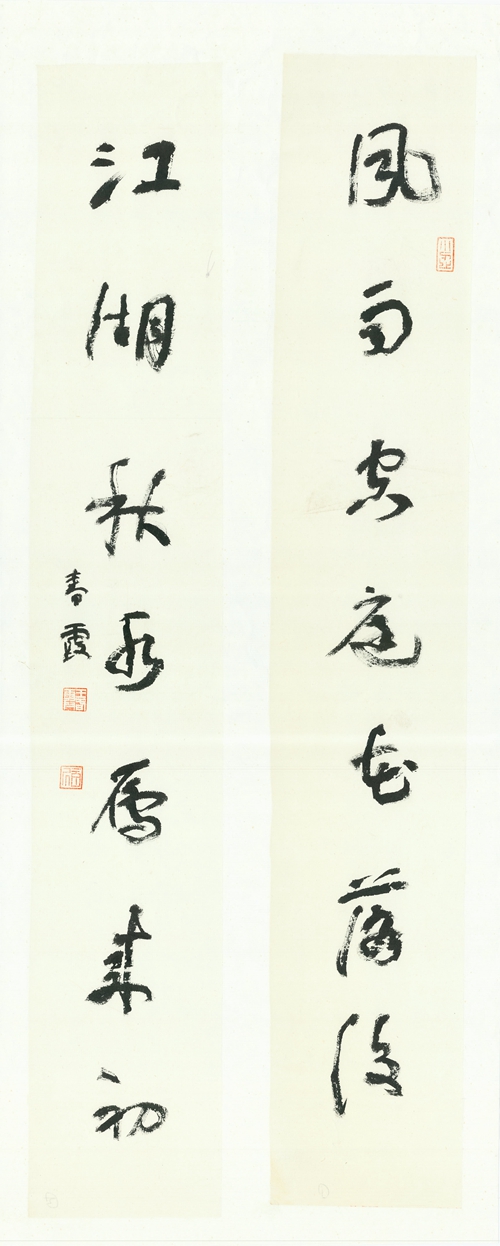 風雨庭花落後
江湖秋水雁來初
春霞